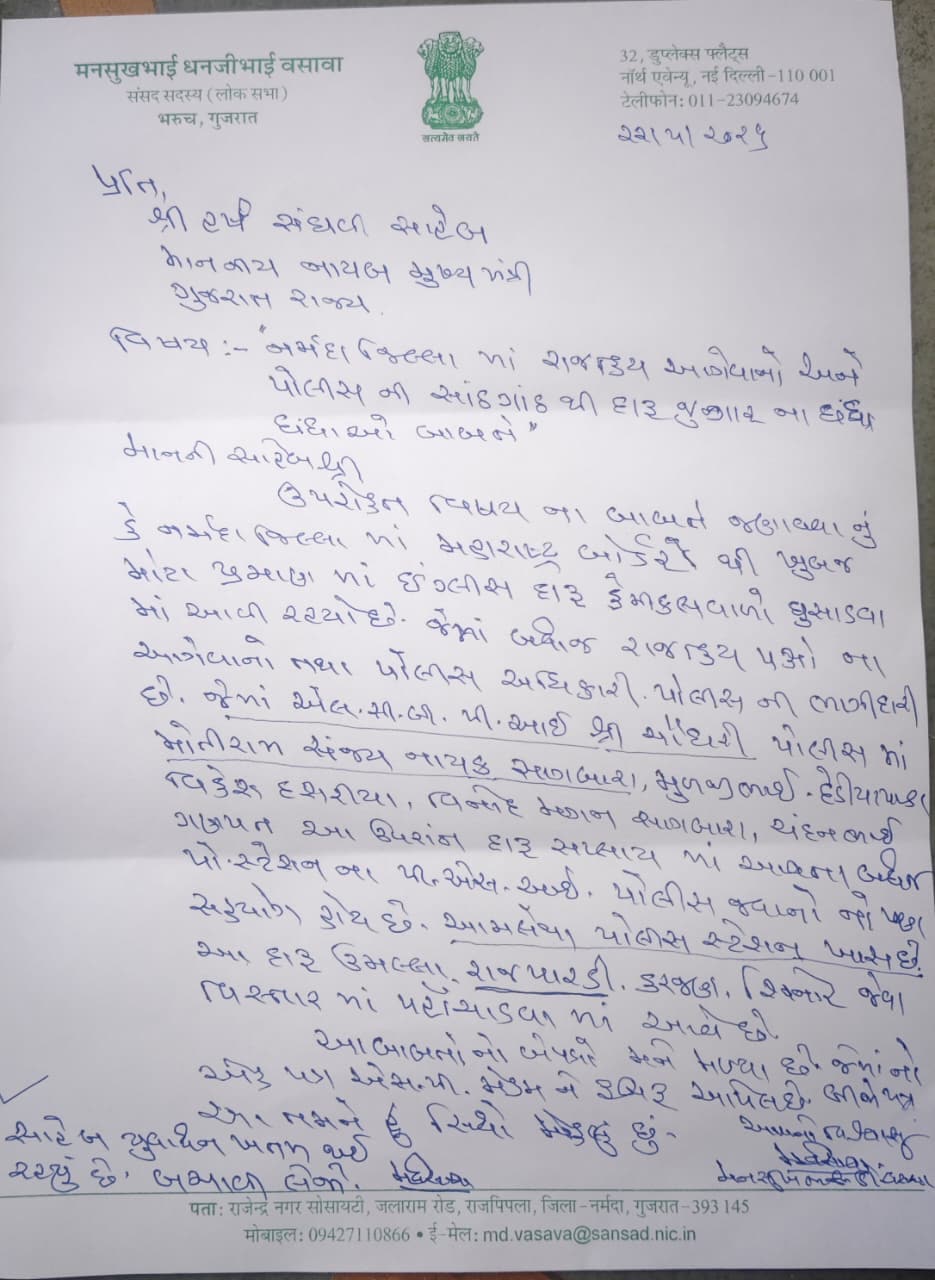 मनसुखभाई धनजीभाई वसावा
संसद सदस्य (लोक सभा)
भरुच, गुजरात
सत्यमेव जयते
32, डुप्लेक्स फ्लैट्स
नॉर्थ एवेन्यू, नई दिल्ली-110 001
टेलीफोन: 011-23094674
પ્રતિ,
શ્રી હર્ષ સંઘવી સાહેબ
માનનીય નાયબ મુખ્ય મંત્રી
ગુજરાત રાજ્ય.
વિષય :- "નર્મદા જિલ્લા માં રાજકીય આગેવાનો અને
પોલીસ ની સાંઠગાંઠ થી દારૂ જુગાર ના ધંધા
ધંધાઓ બાબતે"
માનની સાહેબશ્રી
ઉપરોક્ત વિષય ના બાબતે જણાવવાનું
કે નર્મદા જિલ્લા માં મહારાષ્ટ્ર બોર્ડરો થી ખુબજ
મોટા પ્રમાણ માં ઈંગ્લીસ દારૂ કેમીકલવાળો ઘુસાડવા
માં આવી રહ્યો છે. જેમાં બધાજ રાજકીય પક્ષો ના
આગેવાનો તથા પોલીસ અધિકારી. પોલીસ ની ભાગીદારી
છે. જેમાં એલ.સી.બી. પી.આઈ શ્રી ચૌધરી પોલીસ માં
મોતીરામ સંજય નાયક સાગબારા, મુળજીભાઈ. દેડીયાપાડા
વિકેશ દશરીયા, વિનોદ મગન સાગબારા, ચંદનભાઈ
ગણપત આ ઉપરાંત દારૂ સપ્લાય માં આવતા બધાજ
પો.સ્ટેશન ના પી.એસ.આઈ. પોલીસ જવાનો નો પણ
સહયોગ હોય છે. આમલેથા પોલીસ સ્ટેશન ખાસ છે.
આ દારૂ ઉમલ્લા, રાજપારડી, કરજણ, શિનોર જેવા
વિસ્તાર માં પહોંચાડવા માં આવે છે.
આ બાબતો નો બે પત્રો મને મળ્યા છે. જેમાં નો
એક પત્ર એસ.પી. મેડમ ને રૂબરૂ આપેલ છે. બીજો પત્ર
આ તમને હું સિધો મોકલું છું.
આપનો વિશ્વાસુ
સાહેબ યુવાધન ખતમ થઈ
રહ્યું છે. બચાવી લેજો.
पता: राजेन्द्र नगर सोसायटी, जलाराम रोड, राजपिपला, जिला-नर्मदा, गुजरात-393 145
मोबाइल: 09427110866 • ई-मेल: md.vasava@sansad.nic.in